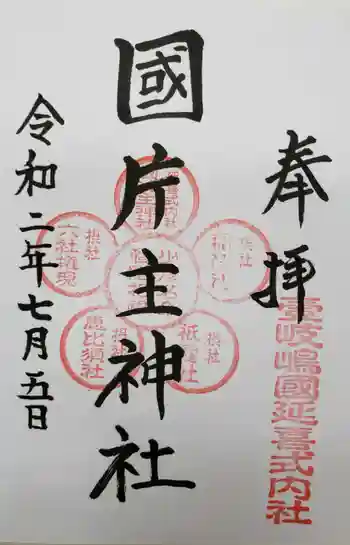 奉拝
壹岐嶋國延喜式内社
國片主神社
摂社
六社権現
摂社
恵比須社
摂社
祇園社
摂社
令和二年七月五日